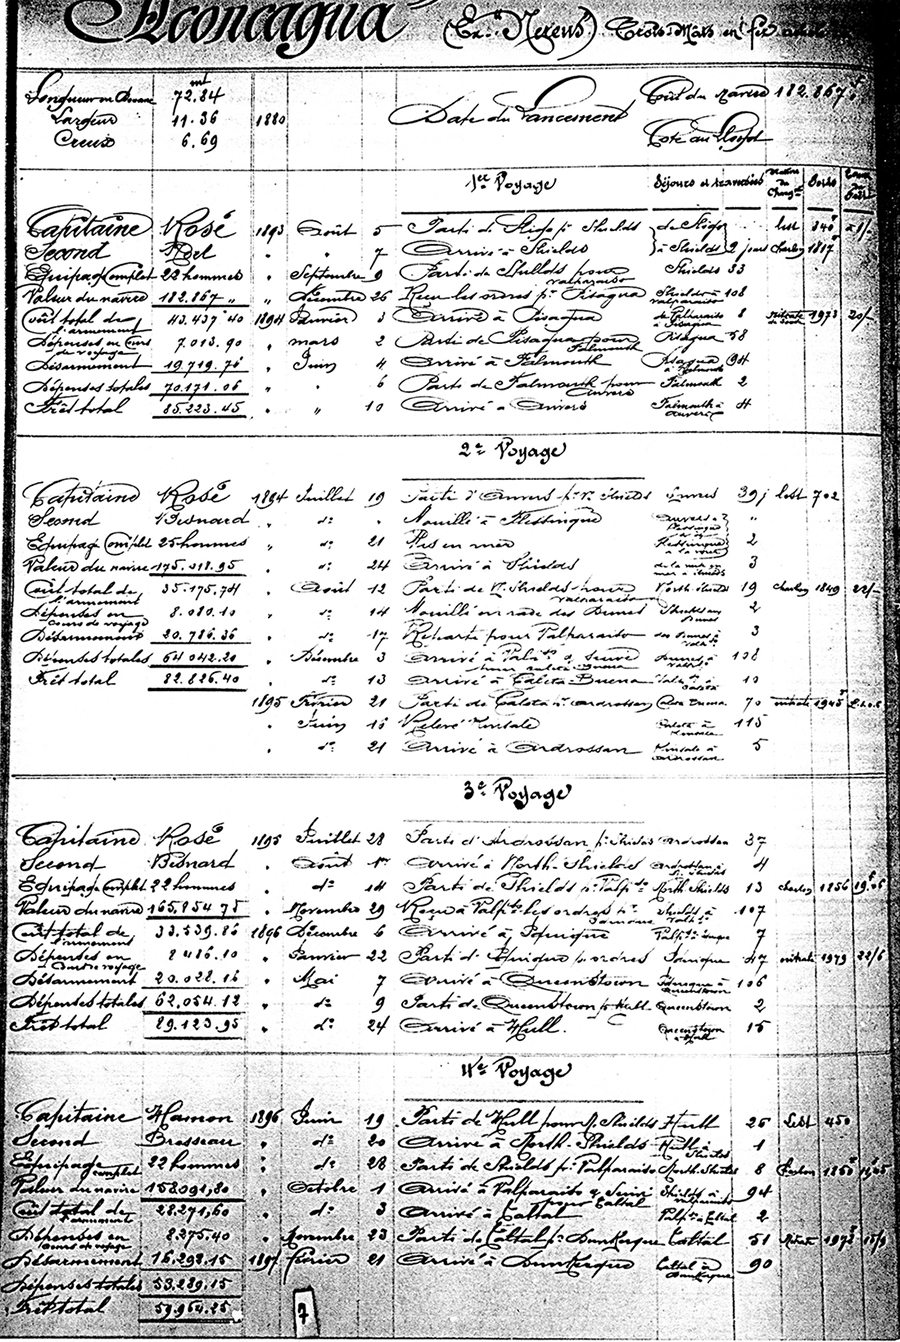 Aconcagua (Ex. Nereus) Trois-Mats en fer
Longueur 72.84 Coût du Navire 182.867
Largeur 11.36 1880 Date du Lancement
Creux 6.69 Cote au Lloyd
1er Voyage Séjours et traversées
Capitaine Rosé 1893 Août 5 Parti de p. Shields lest 340
Second Noel " " 7 Arrivé à Shields à Shields 2 jours 1817
Equipage Complet 22 hommes " Septembre 9 Parti de Shields pour Valparaiso Shields 33
Valeur du navire 182.867 " " Décembre 26 Reçu les ordres pr Pisagua Shields à Valparaiso 108
Coût total de l'armement 43.437 40 1894 Janvier 3 Arrivé à Pisagua de Valparaiso à Pisagua 8 nitrate 1973 20/-
Dépenses en cours de voyage 7.013.90 " mars 2 Parti de Pisagua pour Falmouth Pisagua 58
Désarmement 19,719.76 " Juin 4 Arrivé à Falmouth Pisagua à Falmouth 94
Dépenses totales 70.171.06 " " 6 Parti de Falmouth pour Anvers Falmouth 2
Frêt total 85.223.45 " " 10 Arrivé à Anvers Falmouth à Anvers 4
2e Voyage
Capitaine Rosé 1894 Juillet 19 Parti d'Anvers p. N. Shields Anvers 39 j lest 702
Second Besnard " do " Mouillé à Flessingue
Equipage Complet 25 hommes " do 21 Mis en mer 2
Valeur du navire 175.018.95 " do 24 Arrivé à Shields 3
Coût total de l'armement 35.175.74 " Août 12 Parti de N. Shields pour Valparaiso North Shields 19 1849 22/-
Dépenses en cours de voyage 8.080.10 " do 14 Mouillé en rade des Dunes 2
Désarmement 20.786.36 " do 17 Reparti pour Valparaiso 3
Dépenses totales 64.042.20 " Décembre 3 Arrivé à Valpso 108
Frêt total 82.826.40 " do 13 Arrivé à Caleta-Buena 10
1895 Février 21 Parti de Caleta pr Ardrossan Caleta Buena 70 nitrate 1945
" Juin 16 Relevé Kinsale Caleta à Kinsale 115
" do 21 Arrivé à Ardrossan Kinsale à Ardrossan 5
3e Voyage
Capitaine Rosé 1895 Juillet 28 Parti d'Ardrossan p. Shields Ardrossan 37
Second Besnard " Août 1er Arrivé à North-Shields Ardrossan à N. Shields 4
Equipage Complet 22 hommes " do 14 Parti de Shields pr Valpso North Shields 13 1856
Valeur du navire 165.854 75 " Novembre 29 Reçu à Valpso les ordres pr Iquique Shields à Valpso 107
Coût total de l'armement 33.539.86 1896 Décembre 6 Arrivé à Iquique 7
Dépenses en cours de voyage 8486.10 " Janvier 22 Parti d'Iquique p. ordres Iquique 47 nitrate 1979 22/6
Désarmement 20.028.16 " Mai 7 Arrivé à Queenstown Iquique à Queenstown 106
Dépenses totales 62,054.12 " do 9 Parti de Queenstown pr Hull Queenstown 2
Frêt total 89.123.95 " do 24 Arrivé à Hull. Queenstown à Hull 15
4e Voyage
Capitaine Hamon 1896 Juin 19 Parti de Hull pour N. Shields Hull 26 Lest 450
Second Brosseau " do 20 Arrivé à North-Shields Hull à Shields 1
Equipage complet 22 hommes " do 28 Parti de Shields pr Valparaiso North-Shields 8 1850
Valeur du navire 158091,80 " Octobre 1 Arrivé à Valparaiso Shields à 94
Coût total de l'armement 28.271,60 " do 3 Arrivé à Taltal Valpso à Taltal 2
Dépenses en cours de voyage 8.275.40 " Novembre 23 Parti de Taltal pr Dunkerque Taltal 51 Nitrate 1972
Désarmement 16.292.15 1897 février 21 Arrivé à Dunkerque Taltal à Dunkerque 90
Dépenses totales 53.289.15
Frêt total 59.964.25
7